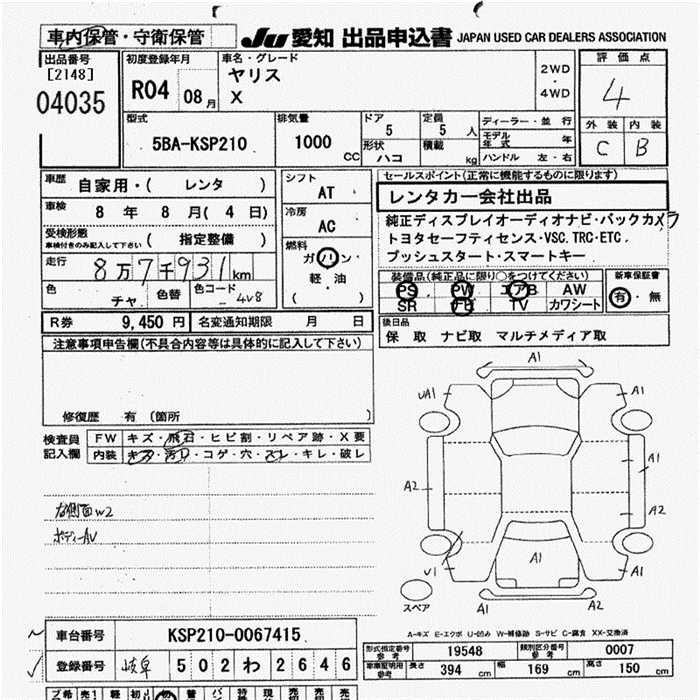 車内保管・守衛保管
Ju 愛知 出品申込書 JAPAN USED CAR DEALERS ASSOCIATION
出品番号
[2148]
04035
初度登録年月
R04 08月
車名・グレード
ヤリス
X
2WD
・
4WD
評価点
4
外装 内装
C B
型式
5BA-KSP210
排気量
1000 CC
ドア
5
形状
ハコ
定員
5 人
積載
kg
ディーラー・並行
モデル年式 年
ハンドル 左・右
車歴
自家用・( レンタ )
車検
8 年 8 月( 4 日)
受検形態
車検付きのみ記入して下さい
( 指定整備 )
走行
8万7千931km
色
チャ
色替
色コード
4V8
シフト
AT
冷房
AC
燃料
ガソリン
・
軽・油
( )
セールスポイント(正常に機能するものに限ります)
レンタカー会社出品
純正ディスプレイオーディオナビ・バックカメラ
トヨタセーフティセンス・VSC.TRC・ETC.
プッシュスタート・スマートキー
装備品(純正品に限り○をつけてください)
PS PW エアB AW
SR TV カワシート
新車保証書
有・無
R券 9,450 円
名変通知期限 月 日
後日品
保 取 ナビ取 マルチメディア取
注意事項申告欄(不具合内容等は具体的に記入して下さい)
修復歴 有 (箇所 )
検査員
記入欄
FW キズ・飛石・ヒビ割・リペア跡・X要
内装 キズ・汚れ・コゲ・穴・スレ・キレ・破レ
右側面W2
ボディーAV
A1
UA1
A1
A1
A2
A2
A1
U1
A1
A1
A2
スペア
A-キズ E-エクボ U-凹み W-補修跡 S-サビ C-腐食 XX-交換済
車台番号 KSP210-0067415
登録番号 岐阜 502 わ 2646
型式指定番号
参考
19548
類別区分番号
参考
0007
車庫証明用
参考
長さ 394 cm 幅 169 cm 高さ 150 cm